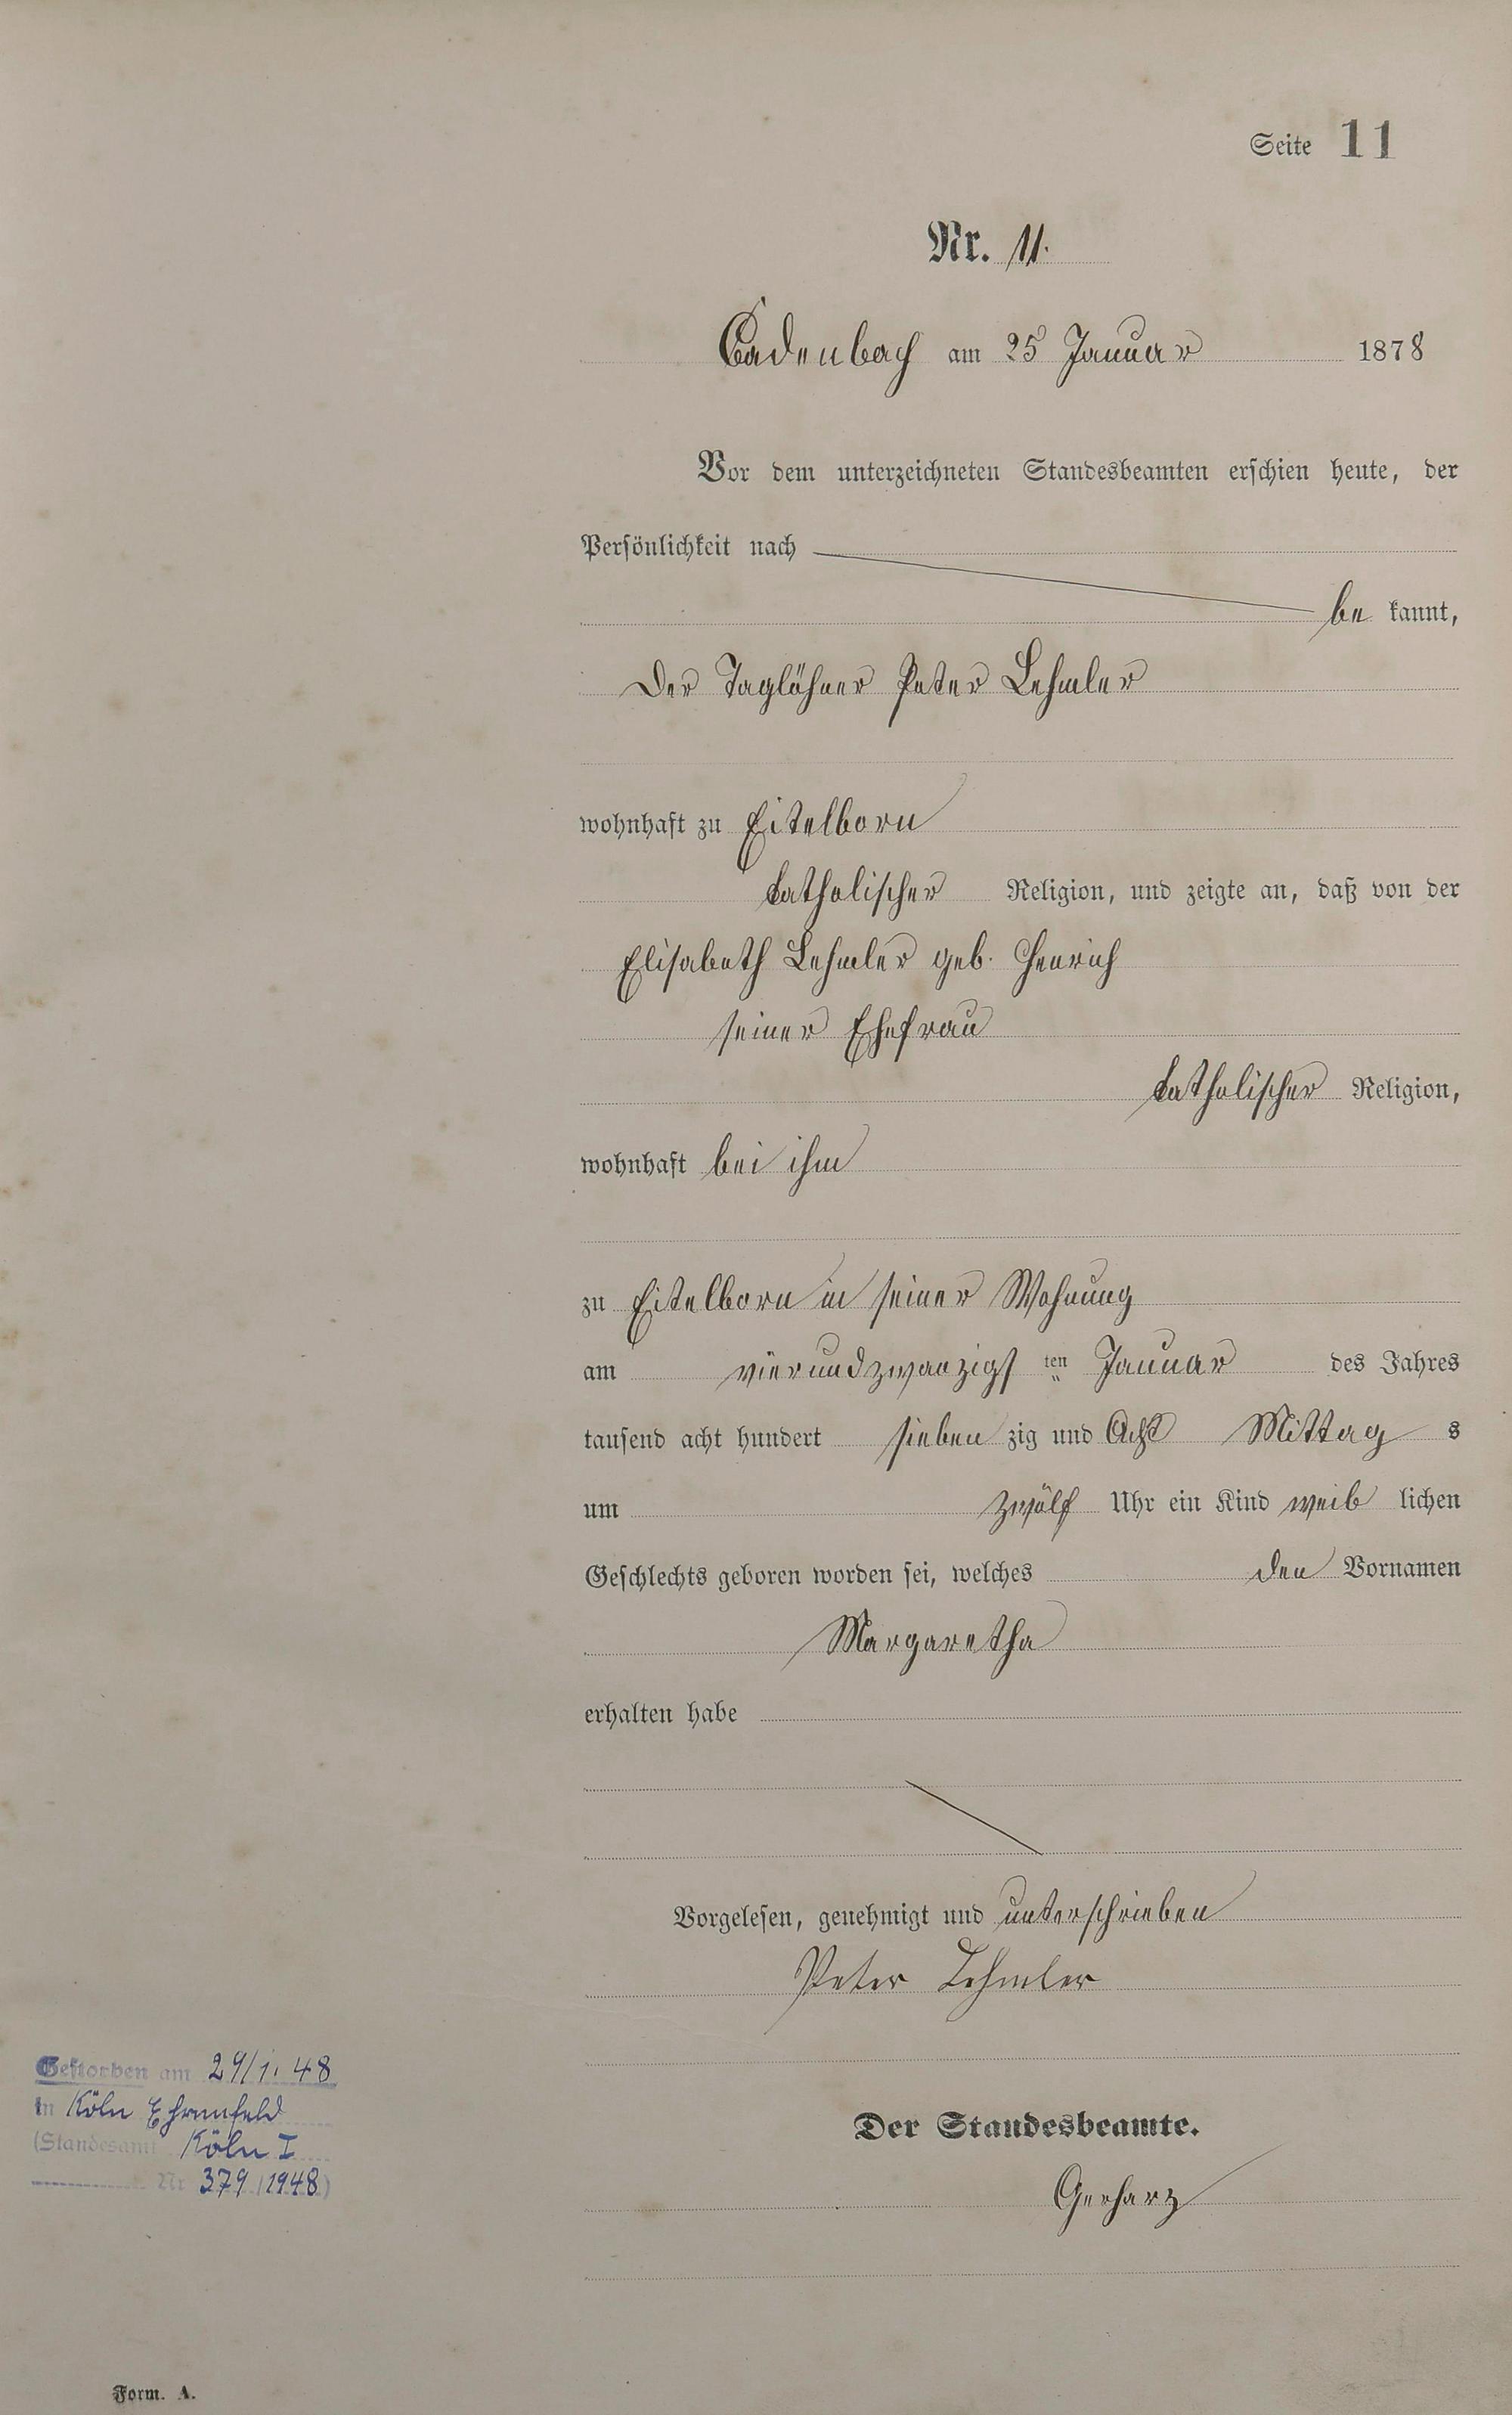 Seite 11
Nr. 11.
Cadenbach am 25 Januar 1878
Vor dem unterzeichneten Standesbeamten erschien heute, der
Persönlichkeit nach
be kannt,
Der Taglöhner Peter Lehmler
wohnhaft zu Eitelborn
katholischer Religion, und zeigte an, daß von der
Elisabeth Lehmler geb. Henrich
seiner Ehefrau
katholischer Religion,
wohnhaft bei ihm
zu Eitelborn in seiner Wohnung
am vierundzwanzigs ten Januar des Jahres
tausend acht hundert sieben zig und Acht Mittag s
um zwölf Uhr ein Kind weib lichen
Geschlechts geboren worden sei, welches den Vornamen
Margaretha
erhalten habe
Vorgelesen, genehmigt und unterschrieben
Peter Lehmler
Der Standesbeamte.
Gerharz
Gestorben am 29/1. 48
in Köln Ehrenfeld
(Standesamt Köln I
Nr 379/1948)
Form. A.